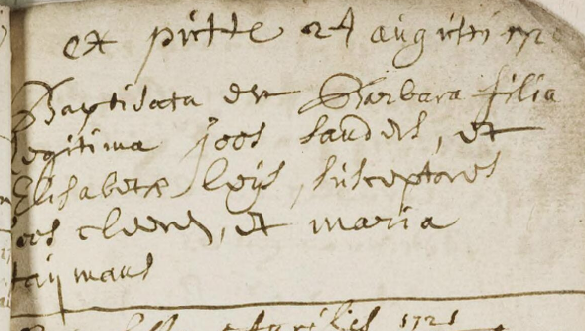 et pitte 24 augusti 172
Baptisata est Barbara filia
legitima joos sanders, et
Elisabetæ leys, susceptores
joos cleeren, et maria
taymans
Aprilis 1721